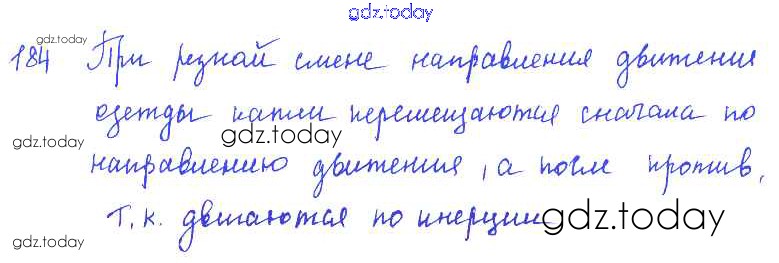 gdz.today
184 При резкой смене направления движения
gdz.today
одежды капли перемещаются сначала по
gdz.today gdz.today
направлению движения, а после против,
т.к. двигаются по инерции
gdz.today
gdz.today